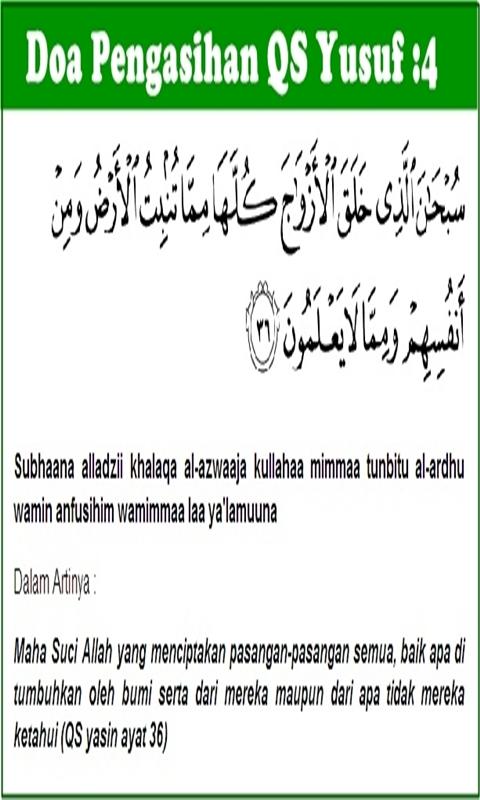 Doa Pengasihan QS Yusuf :4
سُبْحَانَ ٱلَّذِى خَلَقَ ٱلْأَزْوَٰجَ كُلَّهَا مِمَّا تُنۢبِتُ ٱلْأَرْضُ وَمِنْ
أَنفُسِهِمْ وَمِمَّا لَا يَعْلَمُونَ ٣٦
Subhaana alladzii khalaqa al-azwaaja kullahaa mimmaa tunbitu al-ardhu
wamin anfusihim wamimmaa laa ya'lamuuna
Dalam Artinya :
Maha Suci Allah yang menciptakan pasangan-pasangan semua, baik apa di
tumbuhkan oleh bumi serta dari mereka maupun dari apa tidak mereka
ketahui (QS yasin ayat 36)